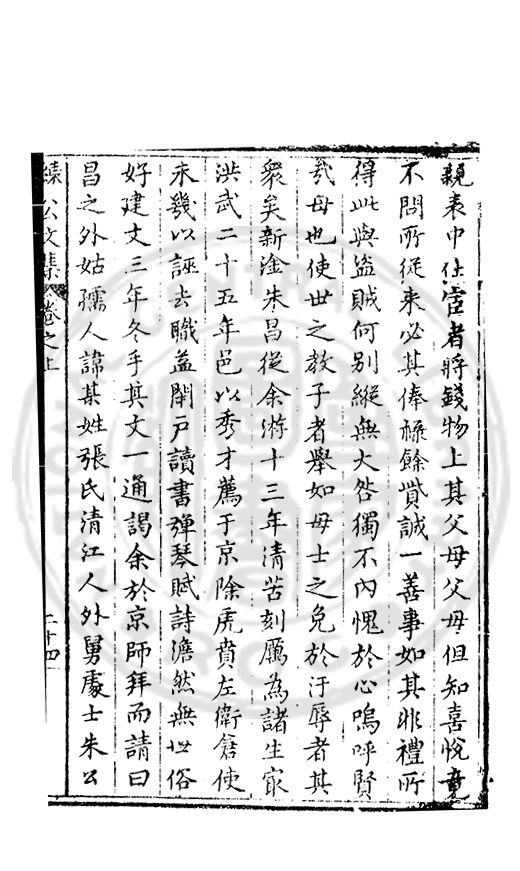 親表中仕宦者將錢物上其父母父母但知喜悅竟
不問所從来必其俸祿餘貲誠一善事如其非禮所
得此與盜賊何别縱無大咎獨不內愧於心嗚呼賢
㦲母也使世之教子者舉如母士之免於汙辱者其
衆矣新淦朱昌從余游十三年清苦刻厲為諸生㝡
洪武二十五年邑以秀才薦于京除虎賁左衛倉使
未幾以誣去職益閉户讀書彈琴賦詩澹然無世俗
好建文三年冬手其文一通謁余於京師拜而請曰
昌之外姑孺人諱某姓張氏清江人外舅處士朱公
公文集 卷之上 二十四